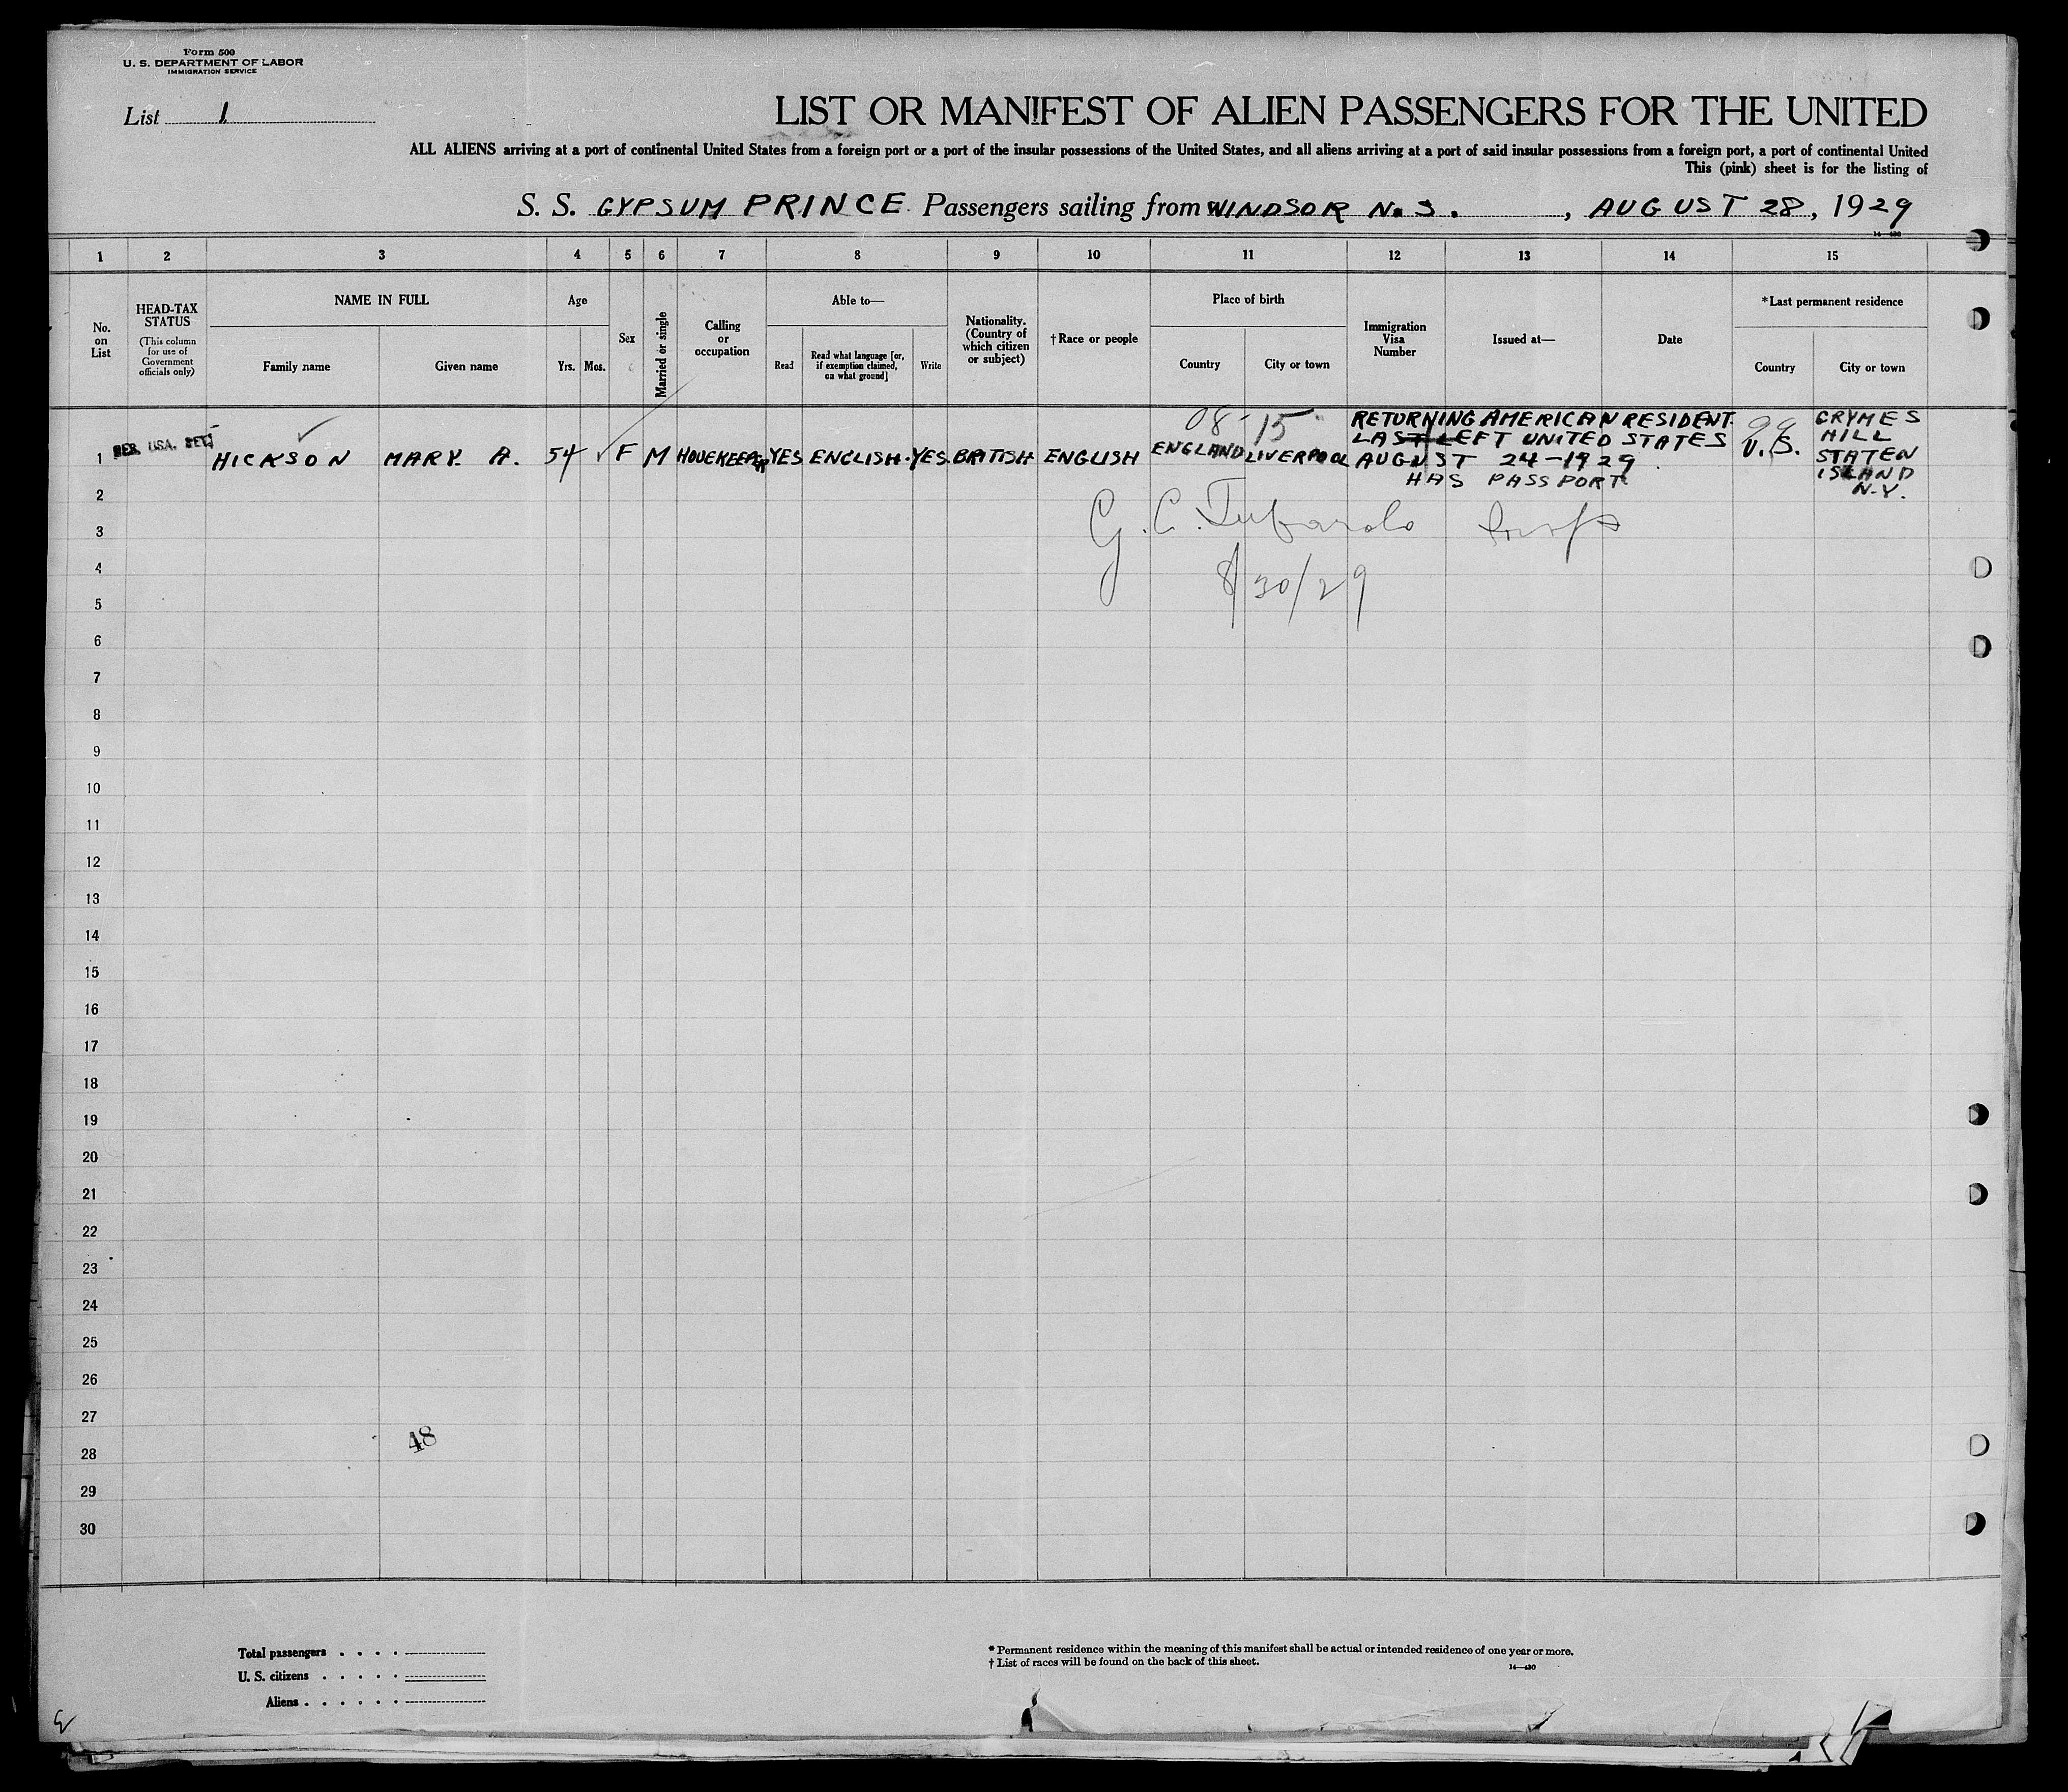 Form 500
U. S. DEPARTMENT OF LABOR
IMMIGRATION SERVICE
List 1
LIST OR MANIFEST OF ALIEN PASSENGERS FOR THE UNITED
ALL ALIENS arriving at a port of continental United States from a foreign port or a port of the insular possessions of the United States, and all aliens arriving at a port of said insular possessions from a foreign port, a port of continental United
This (pink) sheet is for the listing of
S. S. GYPSUM PRINCE Passengers sailing from WINDSOR N.S. , AUGUST 28, 1929
14—430
1 2 3 4 5 6 7 8 9 10 11 12 13 14 15
No. on List
HEAD-TAX STATUS
(This column for use of Government officials only)
NAME IN FULL
Family name Given name
Age
Yrs. Mos.
Sex
Married or single
Calling or occupation
Able to—
Read
Read what language [or, if exemption claimed, on what ground]
Write
Nationality. (Country of which citizen or subject)
†Race or people
Place of birth
Country City or town
Immigration Visa Number
Issued at—
Date
*Last permanent residence
Country City or town
08-15 99
1 USA. HICKSON MARY A. 54 F M HOUEKEEPER YES ENGLISH. YES. BRITISH ENGLISH ENGLAND LIVERPOOL
RETURNING AMERICAN RESIDENT.
LAST LEFT UNITED STATES
AUGUST 24-1929
HAS PASSPORT
U.S.
GRYMES
HILL
STATEN
ISLAND
N.Y.
2
3 G. C.
4 8/30/29
5
6
7
8
9
10
11
12
13
14
15
16
17
18
19
20
21
22
23
24
25
26
27
48
28
29
30
Total passengers . . . .
U. S. citizens . . . . .
Aliens . . . . . .
* Permanent residence within the meaning of this manifest shall be actual or intended residence of one year or more.
† List of races will be found on the back of this sheet.
14—430